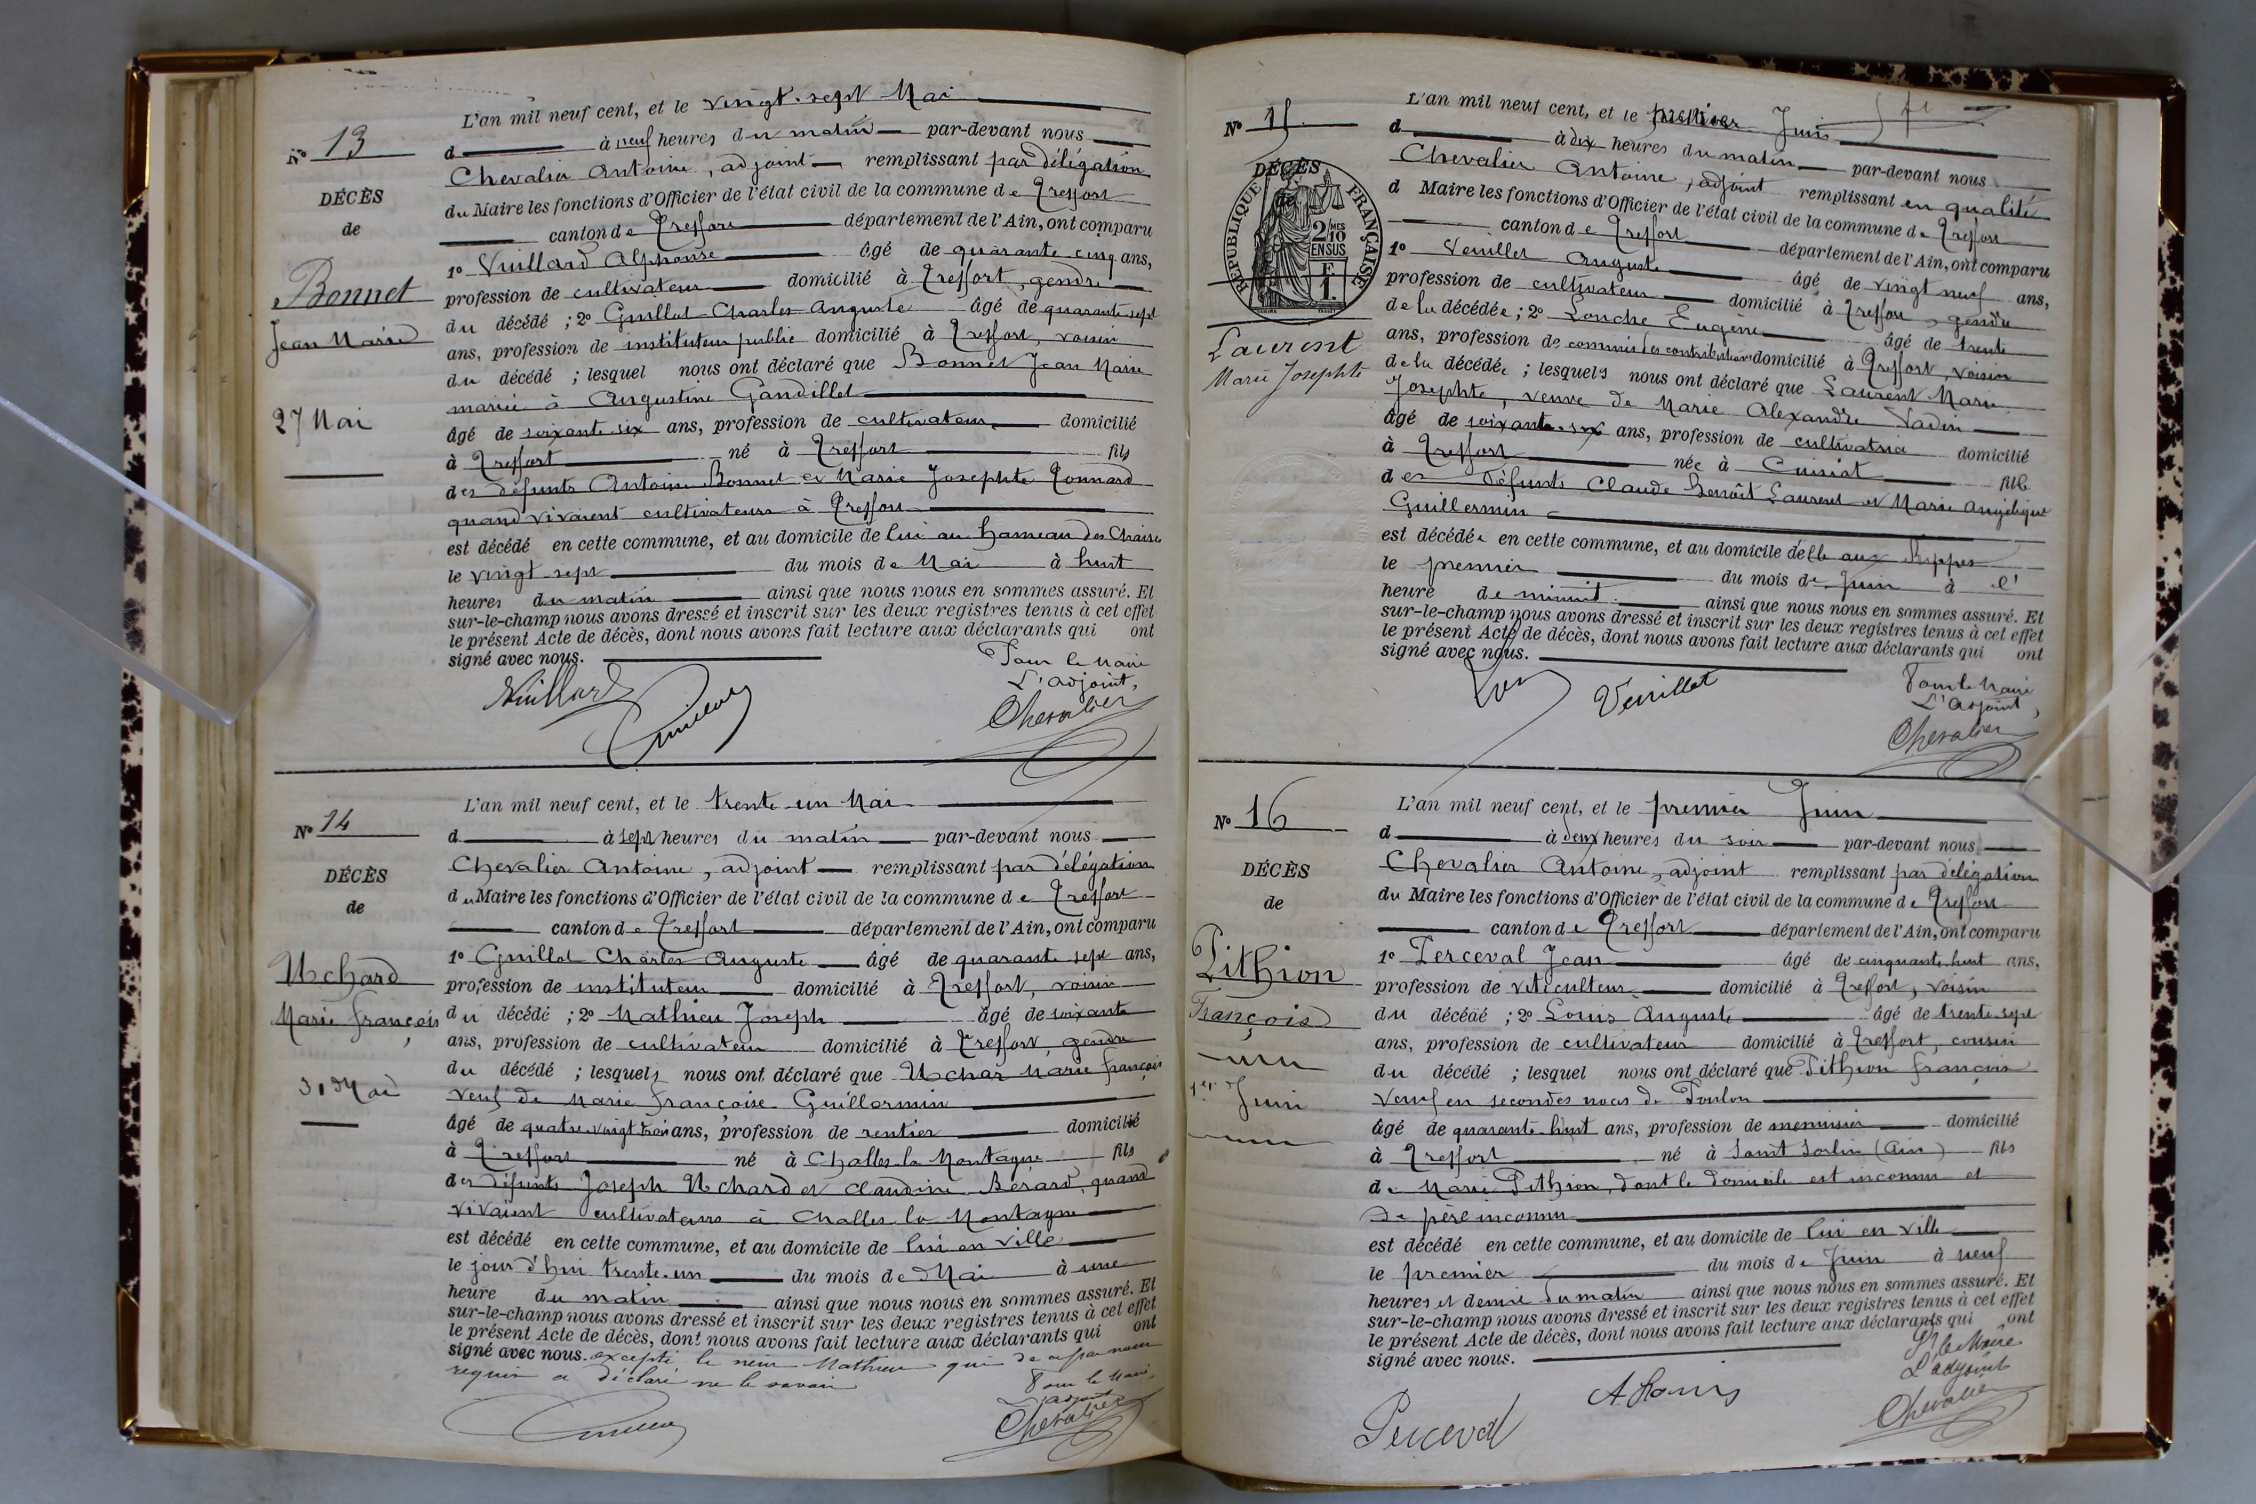 L'an mil neuf cent, et le vingt-sept Mai
N° 13
d à neuf heures du matin par-devant nous
Chevalier Antoine, adjoint remplissant par délégation
DÉCÈS
du Maire les fonctions d'Officier de l'état civil de la commune de Treffort
de
canton de Treffort département de l'Ain, ont comparu
1° Vuillard Alphonse âgé de quarante-cinq ans,
Bonnet
profession de cultivateur domicilié à Treffort, gendre
du décédé ; 2° Guillot Charles Auguste âgé de quarante-sept
Jean Marie
ans, profession de instituteur public domicilié à Treffort, voisin
du décédé ; lesquel nous ont déclaré que Bonnet Jean Marie
marié à Augustine Gandillet
27 Mai
âgé de soixante-six ans, profession de cultivateur domicilié
à Treffort né à Treffort fils
des défunts Antoine Bonnet et Marie Josephte Tonnard
quand vivaient cultivateurs à Treffort
est décédé en cette commune, et au domicile de lui au hameau des Chaises
le vingt-sept du mois de Mai à huit
heures du matin ainsi que nous nous en sommes assuré. Et
sur-le-champ nous avons dressé et inscrit sur les deux registres tenus à cet effet
le présent Acte de décès, dont nous avons fait lecture aux déclarants qui ont
signé avec nous.
Pour le Maire
L'adjoint,
Vuillard Guillot Chevalier
L'an mil neuf cent, et le trente-un Mai
N° 14
d à sept heures du matin par-devant nous
Chevalier Antoine, adjoint remplissant par délégation
DÉCÈS
du Maire les fonctions d'Officier de l'état civil de la commune de Treffort
de
canton de Treffort département de l'Ain, ont comparu
1° Guillot Charles Auguste âgé de quarante sept ans,
Uchard
profession de instituteur domicilié à Treffort, voisin
Marie François
du décédé ; 2° Mathieu Joseph âgé de soixante
ans, profession de cultivateur domicilié à Treffort, gendre
du décédé ; lesquels nous ont déclaré que Uchar Marie François
31 Mai
veuf de Marie Françoise Guillermin
âgé de quatre-vingt trois ans, profession de rentier domicilié
à Treffort né à Challes la Montagne fils
des défunts Joseph Uchard et Claudine Bérard, quand
vivaient cultivateurs à Challes la Montagne
est décédé en cette commune, et au domicile de lui en ville
le jour d'hui trente-un du mois de Mai à une
heure du matin ainsi que nous nous en sommes assuré. Et
sur-le-champ nous avons dressé et inscrit sur les deux registres tenus à cet effet
le présent Acte de décès, dont nous avons fait lecture aux déclarants qui ont
signé avec nous. excepté le sieur Mathieu qui de ce par nous
requis a déclaré ne le savoir
Pour le Maire,
L'adjoint
Chevalier
L'an mil neuf cent, et le premier Juin
N° 15
d à dix heures du matin par-devant nous
Chevalier Antoine, adjoint remplissant en qualité
DÉCÈS
de
d Maire les fonctions d'Officier de l'état civil de la commune de Treffort
RÉPUBLIQUE FRANÇAISE
2/10 MES
EN SUS
F
1.
canton de Treffort département de l'Ain, ont comparu
1° Veuillet Auguste âgé de vingt neuf ans,
profession de cultivateur domicilié à Treffort, gendre
de la décédée ; 2° Louche Eugène âgé de trente
Laurent
ans, profession de commis des contributions domicilié à Treffort, voisin
Marie Josephte
de la décédée ; lesquels nous ont déclaré que Laurent Marie
Josephte, veuve de Marie Alexandre Vadin
âgé de soixante-six ans, profession de cultivatrice domicilié
à Treffort née à Cuisiat fille
des défunts Claude Benoît Laurent et Marie Angélique
Guillermin
est décédée en cette commune, et au domicile d'elle aux Rippes
le premier du mois de Juin à l'
heure de minuit. ainsi que nous nous en sommes assuré. Et
sur-le-champ nous avons dressé et inscrit sur les deux registres tenus à cet effet
le présent Acte de décès, dont nous avons fait lecture aux déclarants qui ont
signé avec nous.
Pour le Maire
L'adjoint,
Veuillet Chevalier
L'an mil neuf cent, et le premier Juin
N° 16
d à deux heures du soir par-devant nous
Chevalier Antoine, adjoint remplissant par délégation
DÉCÈS
du Maire les fonctions d'Officier de l'état civil de la commune de Treffort
de
canton de Treffort département de l'Ain, ont comparu
1° Perceval Jean âgé de cinquante-huit ans,
Pithion
profession de viticulteur domicilié à Treffort, voisin
François
du décédé ; 2° Louis Auguste âgé de trente-sept
ans, profession de cultivateur domicilié à Treffort, cousin
du décédé ; lesquel nous ont déclaré que Pithion François
1er Juin
veuf en secondes noces de Poulon
âgé de quarante-huit ans, profession de menuisier domicilié
à Treffort né à Saint Sorlin (Ain) fils
de Marie Pithion, dont le domicile est inconnu et
de père inconnu
est décédé en cette commune, et au domicile de lui en ville
le premier du mois de Juin à neuf
heures et demie du matin ainsi que nous nous en sommes assuré. Et
sur-le-champ nous avons dressé et inscrit sur les deux registres tenus à cet effet
le présent Acte de décès, dont nous avons fait lecture aux déclarants qui ont
signé avec nous.
Pr le Maire
L'adjoint
Perceval A Louis Chevalier